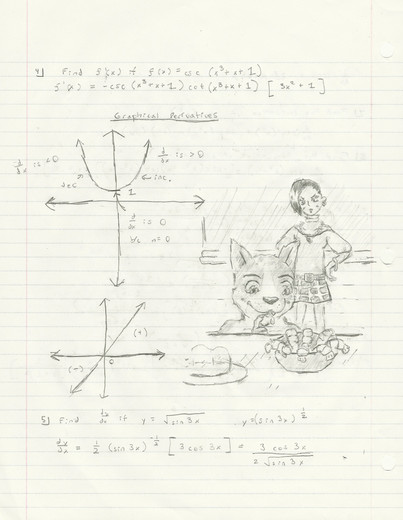 4) Find f'(x) if f(x) = csc (x³ + x + 1)
f'(x) = -csc (x³ + x + 1) cot (x³ + x + 1) [ 3x² + 1 ]
Graphical Derivatives
d/dx is < 0
d/dx is > 0
dec
inc.
1
d/dx is 0
b/c m = 0
(+)
0
(-)
5) Find dy/dx if y = √sin 3x y = (sin 3x)^1/2
dy/dx = 1/2 (sin 3x)^-1/2 [ 3 cos 3x ] = 3 cos 3x / 2 √sin 3x